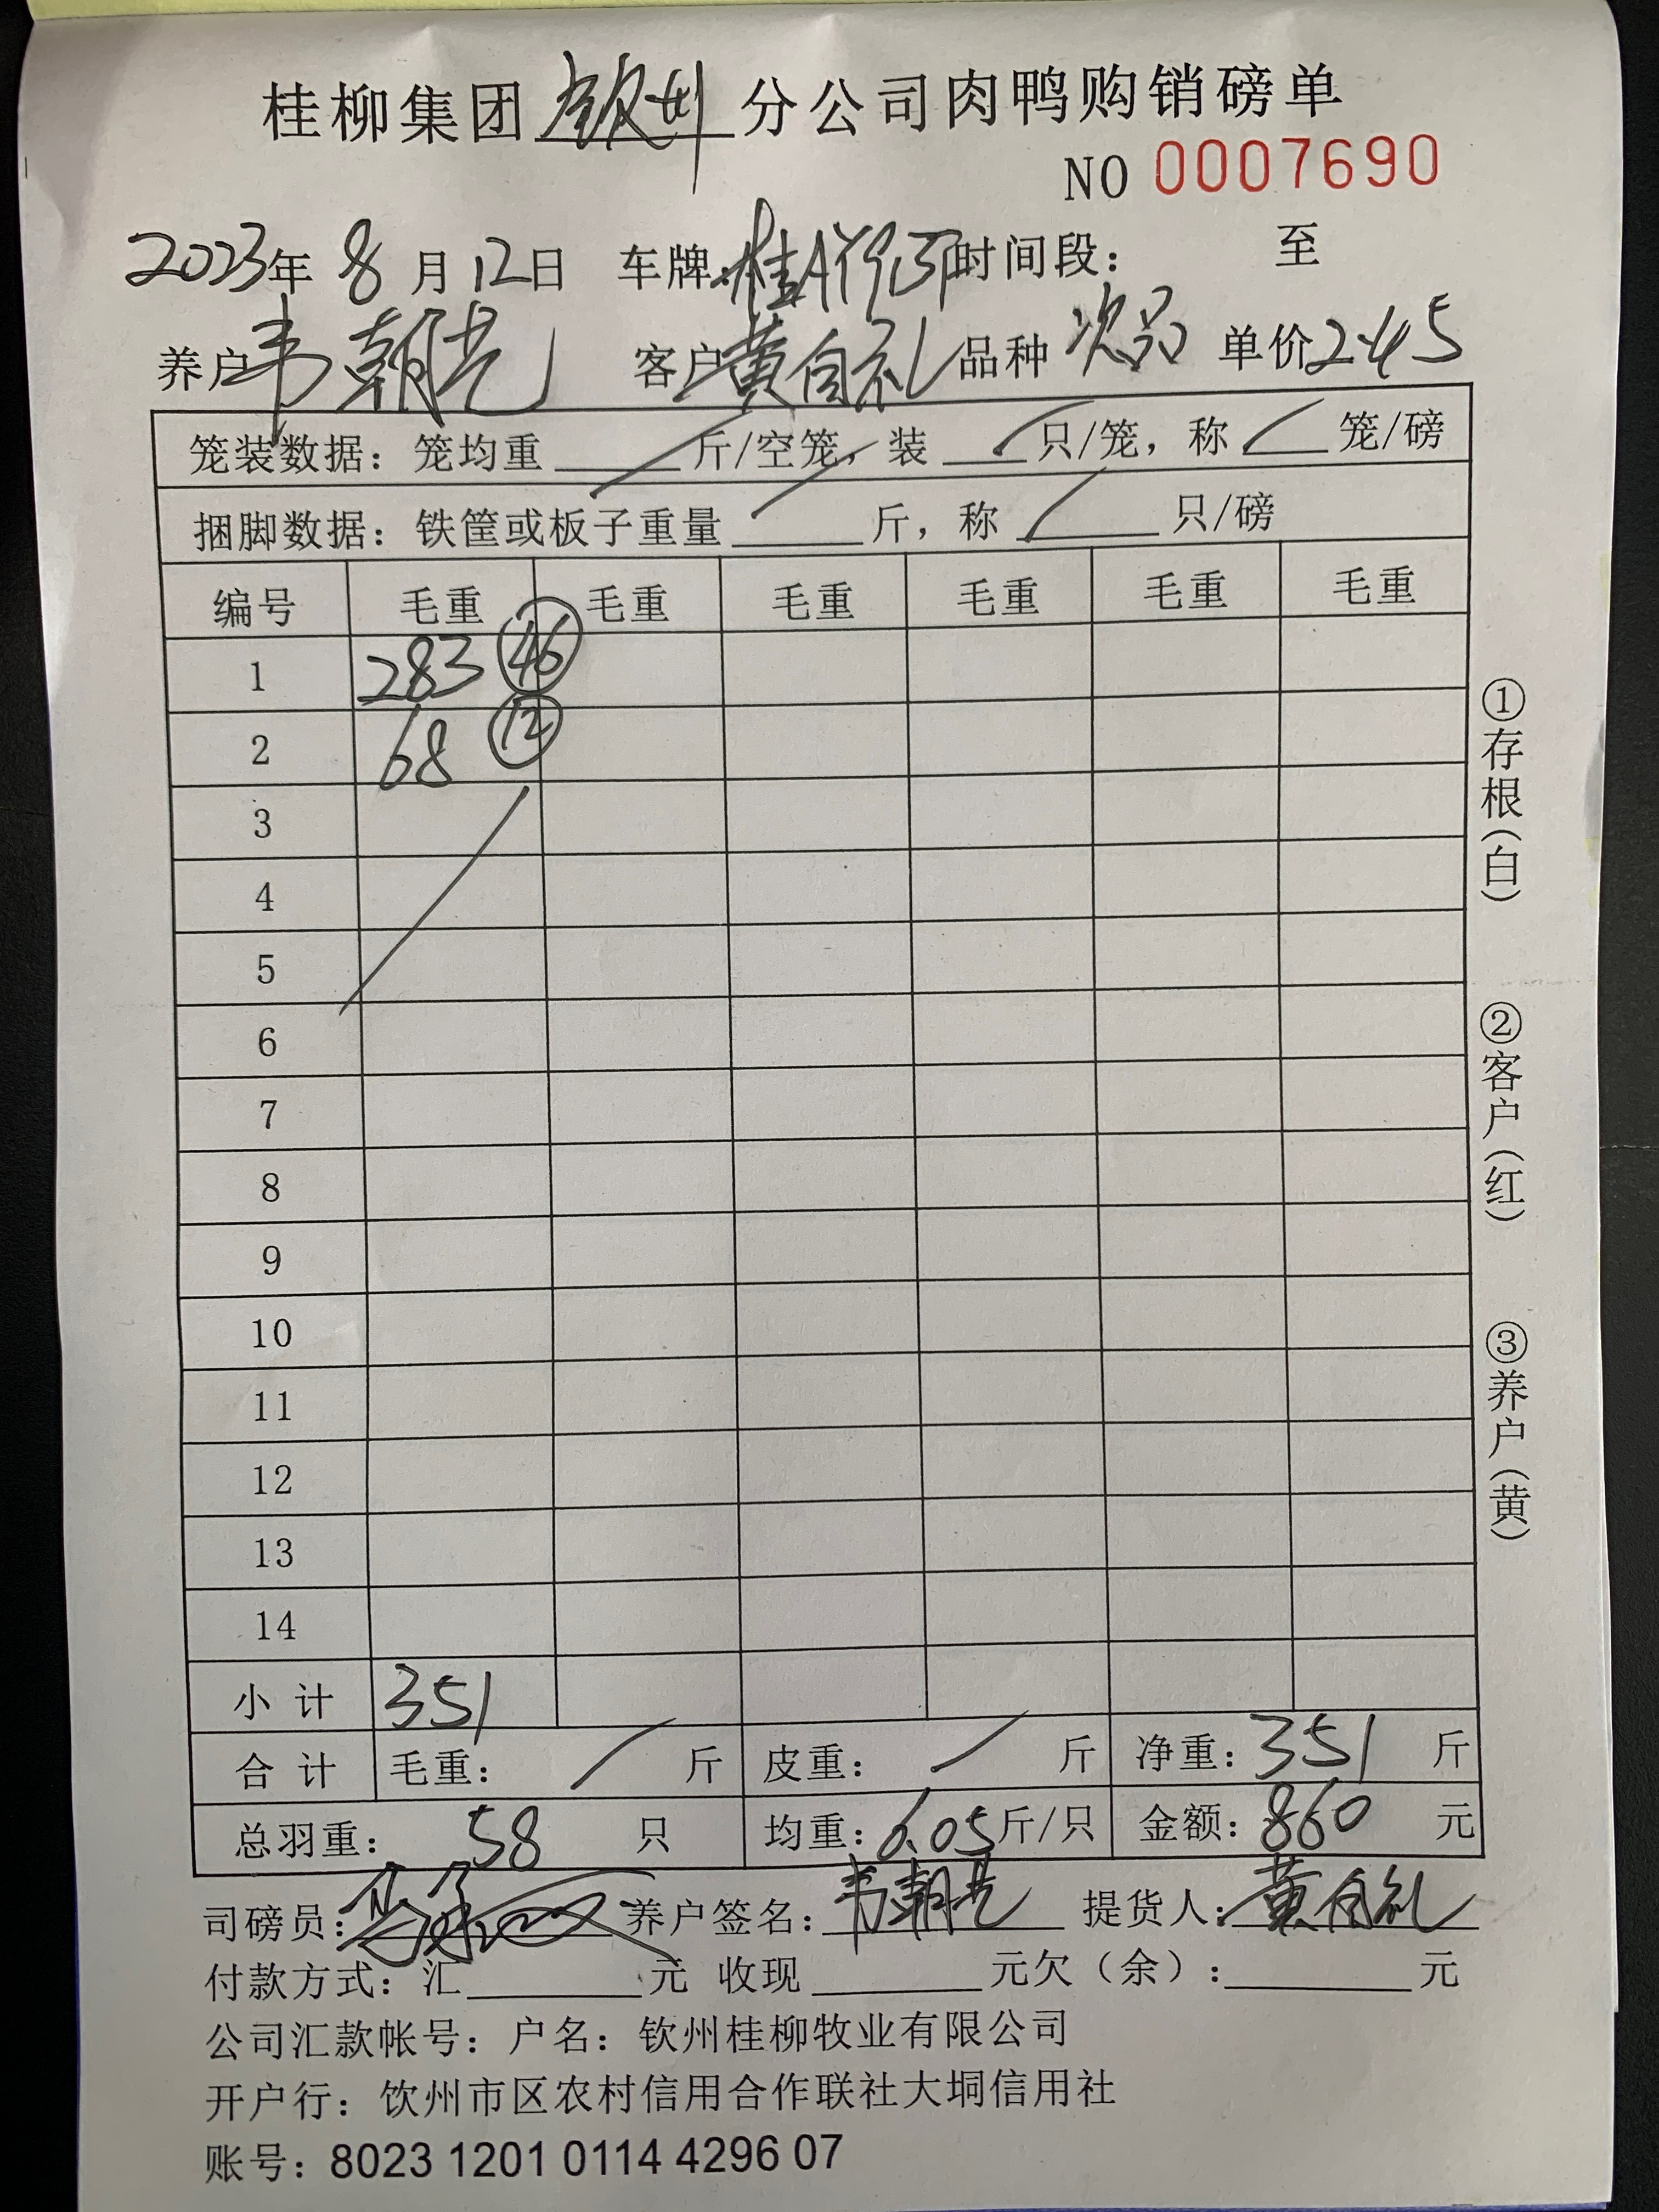 桂柳集团钦州分公司肉鸭购销磅单
NO 0007690
2023年 8月12日 车牌: 时间段: 至
养户韦朝光 客户黄自礼 品种 次品 单价2.45
笼装数据: 笼均重 斤/空笼, 装 只/笼, 称 笼/磅
捆脚数据: 铁筐或板子重量 斤, 称 只/磅
编号 毛重 毛重 毛重 毛重 毛重 毛重
1 283 46
2 68 12
3
4
5
6
7
8
9
10
11
12
13
14
小 计 351
合 计 毛重: 斤 皮重: 斤 净重: 351 斤
总羽重: 58 只 均重: 6.05斤/只 金额: 860 元
司磅员: 养户签名: 韦朝光 提货人: 黄自礼
付款方式: 汇 元 收现 元欠(余): 元
公司汇款帐号: 户名: 钦州桂柳牧业有限公司
开户行: 钦州市区农村信用合作联社大垌信用社
账号: 8023 1201 0114 4296 07
①存根(白) ②客户(红) ③养户(黄)